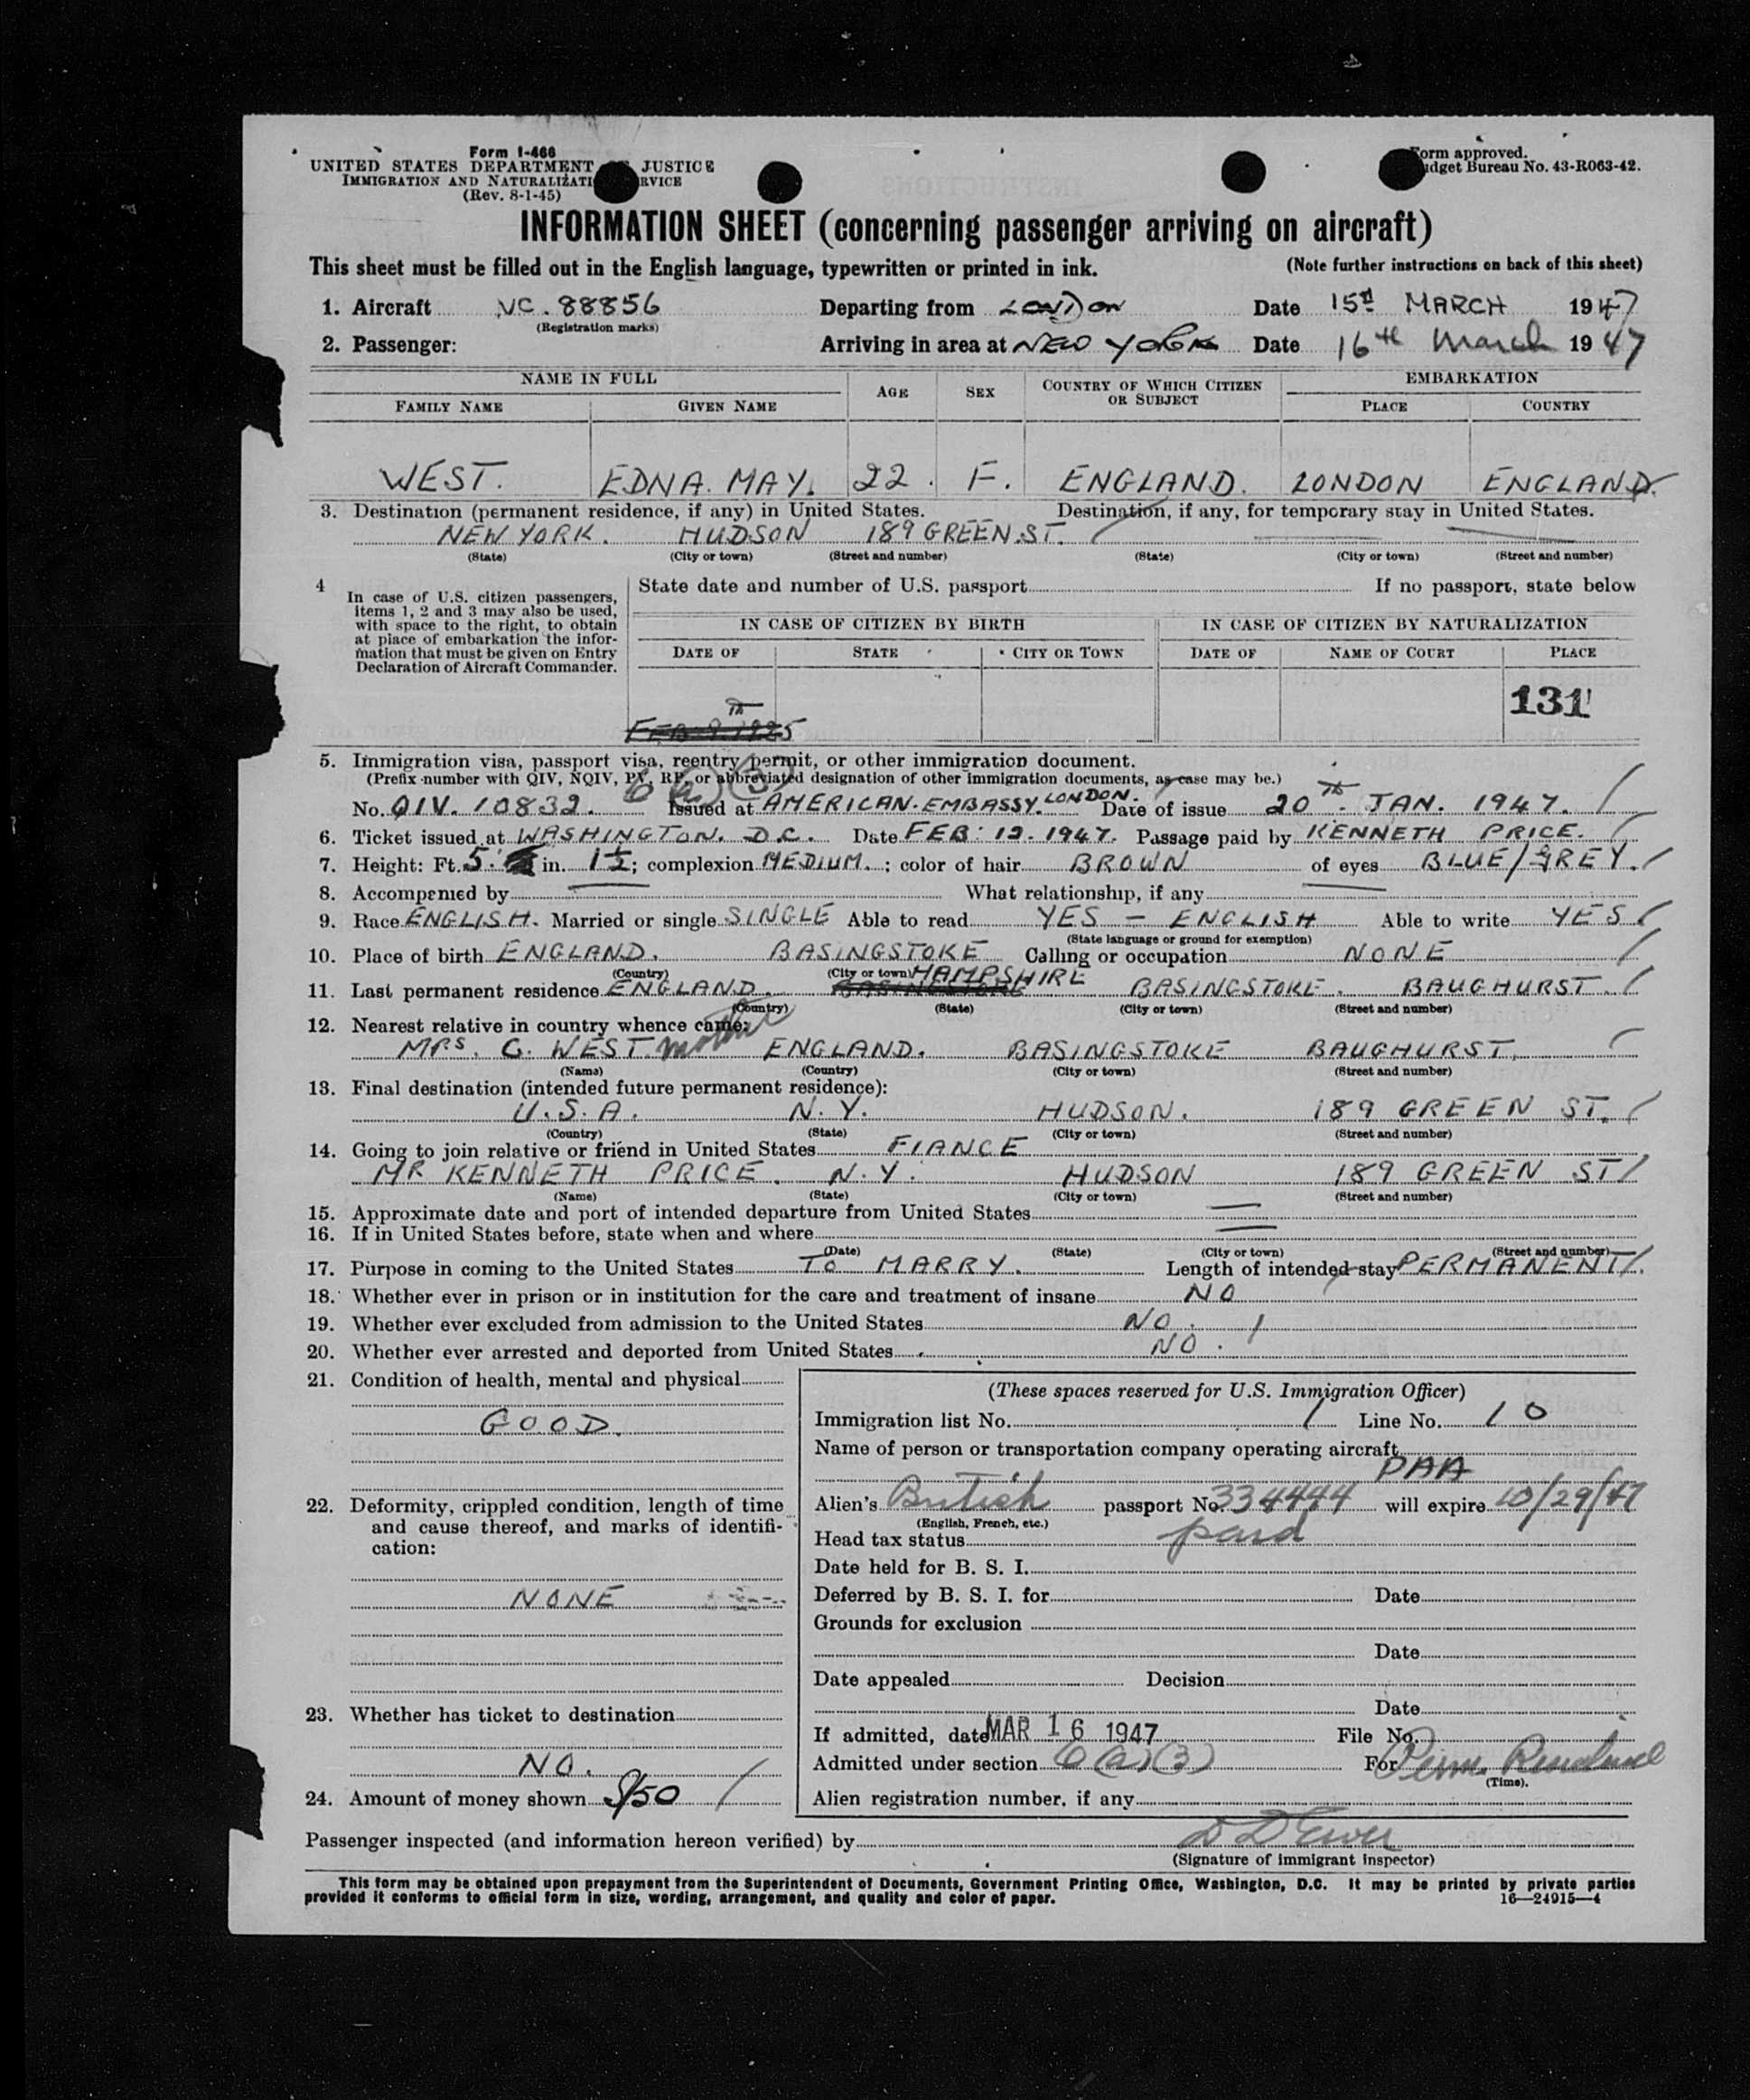 Form I-466
UNITED STATES DEPARTMENT JUSTICE
IMMIGRATION AND NATURALIZATI RVICE
(Rev. 8-1-45)
Form approved.
udget Bureau No. 43-R063-42.
INFORMATION SHEET (concerning passenger arriving on aircraft)
This sheet must be filled out in the English language, typewritten or printed in ink. (Note further instructions on back of this sheet)
1. Aircraft NC. 88856 Departing from LONDON Date 15th MARCH 1947
(Registration marks)
2. Passenger: Arriving in area at NEW YORK Date 16th March 1947
NAME IN FULL AGE SEX COUNTRY OF WHICH CITIZEN OR SUBJECT EMBARKATION
FAMILY NAME GIVEN NAME PLACE COUNTRY
WEST. EDNA. MAY. 22. F. ENGLAND. LONDON ENGLAND.
3. Destination (permanent residence, if any) in United States. Destination, if any, for temporary stay in United States.
NEW YORK. HUDSON 189 GREEN.ST.
(State) (City or town) (Street and number) (State) (City or town) (Street and number)
4 In case of U.S. citizen passengers, items 1, 2 and 3 may also be used, with space to the right, to obtain at place of embarkation the information that must be given on Entry Declaration of Aircraft Commander.
State date and number of U.S. passport If no passport, state below
IN CASE OF CITIZEN BY BIRTH IN CASE OF CITIZEN BY NATURALIZATION
DATE OF STATE CITY OR TOWN DATE OF NAME OF COURT PLACE
131
FEB. 9th 1925
5. Immigration visa, passport visa, reentry permit, or other immigration document.
(Prefix number with QIV, NQIV, PV, RP, or abbreviated designation of other immigration documents, as case may be.)
6(a)(3)
No. QIV. 10832. Issued at AMERICAN. EMBASSY. LONDON. Date of issue 20th. JAN. 1947.
6. Ticket issued at WASHINGTON. D.C. Date FEB: 12. 1947. Passage paid by KENNETH PRICE.
7. Height: Ft. 5. in. 1½; complexion MEDIUM.; color of hair BROWN of eyes BLUE/GREY.
8. Accompenied by What relationship, if any
9. Race ENGLISH. Married or single SINGLE Able to read YES - ENGLISH Able to write YES
(State language or ground for exemption)
10. Place of birth ENGLAND. BASINGSTOKE Calling or occupation NONE
(Country) (City or town)
11. Last permanent residence ENGLAND. BASINGSTOKE HAMPSHIRE BASINGSTOKE. BAUGHURST.
(Country) (State) (City or town) (Street and number)
12. Nearest relative in country whence came:
MRS. G. WEST mother ENGLAND. BASINGSTOKE BAUGHURST.
(Name) (Country) (City or town) (Street and number)
13. Final destination (intended future permanent residence):
U.S.A. N.Y. HUDSON. 189 GREEN ST.
(Country) (State) (City or town) (Street and number)
14. Going to join relative or friend in United States FIANCE
MR KENNETH PRICE. N.Y. HUDSON 189 GREEN ST
(Name) (State) (City or town) (Street and number)
15. Approximate date and port of intended departure from United States
16. If in United States before, state when and where
(Date) (State) (City or town) (Street and number)
17. Purpose in coming to the United States TO MARRY. Length of intended stay PERMANENT.
18. Whether ever in prison or in institution for the care and treatment of insane NO
19. Whether ever excluded from admission to the United States NO.
20. Whether ever arrested and deported from United States NO.
21. Condition of health, mental and physical
GOOD.
22. Deformity, crippled condition, length of time and cause thereof, and marks of identification:
NONE
23. Whether has ticket to destination
NO.
24. Amount of money shown $50
(These spaces reserved for U.S. Immigration Officer)
Immigration list No. 1 Line No. 10
Name of person or transportation company operating aircraft
PAA
Alien's British passport No. 334444 will expire 10/29/47
(English, French, etc.)
Head tax status paid
Date held for B. S. I.
Deferred by B. S. I. for Date
Grounds for exclusion
Date
Date appealed Decision
Date
If admitted, date MAR 16 1947 File No.
Admitted under section 6(a)(3) For Perm. Residence
(Time).
Alien registration number, if any
Passenger inspected (and information hereon verified) by
(Signature of immigrant inspector)
This form may be obtained upon prepayment from the Superintendent of Documents, Government Printing Office, Washington, D.C. It may be printed by private parties
provided it conforms to official form in size, wording, arrangement, and quality and color of paper. 16—24915—4